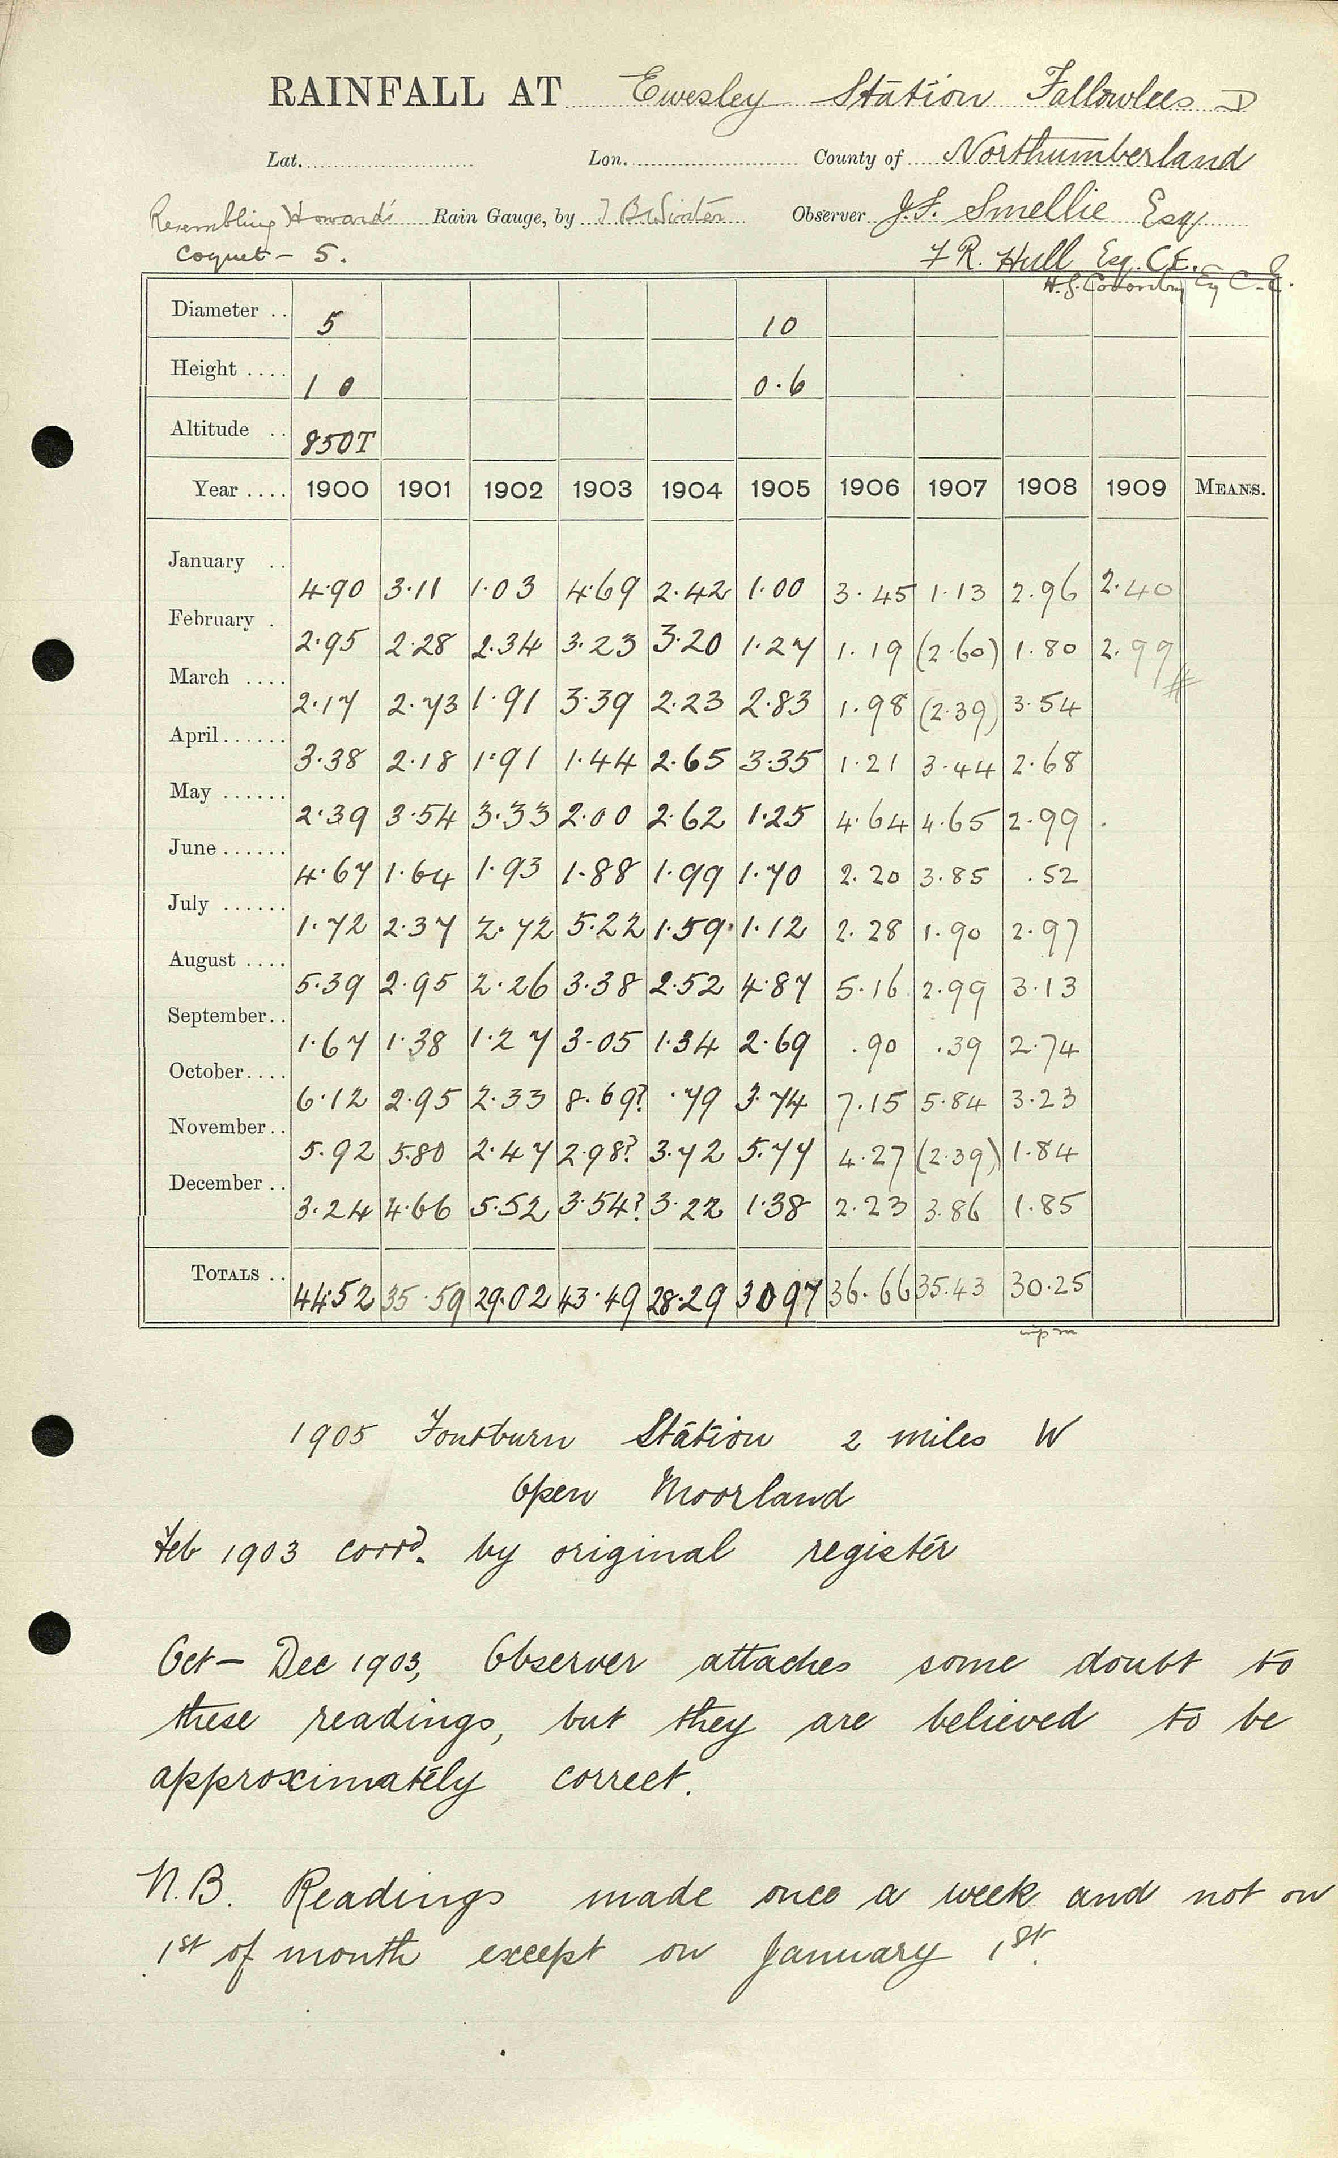 RAINFALL AT Ewesley Station Fallowlees D
Lat. Lon. County of Northumberland
Resembling Howard's Rain Gauge, by Observer J.F. Smellie Esq
Coquet - 5. F R. Hull Esq. C.E.
H.S. Esq C.E.
Diameter .. 5 10
Height .... 1 0 0.6
Altitude .. 850T
Year .... 1900 1901 1902 1903 1904 1905 1906 1907 1908 1909 MEANS.
January .. 4.90 3.11 1.03 4.69 2.42 1.00 3.45 1.13 2.96 2.40
February . 2.95 2.28 2.34 3.23 3.20 1.27 1.19 (2.60) 1.80 2.99
March .... 2.17 2.73 1.91 3.39 2.23 2.83 1.98 (2.39) 3.54
April...... 3.38 2.18 1.91 1.44 2.65 3.35 1.21 3.44 2.68
May ...... 2.39 3.54 3.33 2.00 2.62 1.25 4.64 4.65 2.99
June ...... 4.67 1.64 1.93 1.88 1.99 1.70 2.20 3.85 .52
July ...... 1.72 2.37 2.72 5.22 1.59 1.12 2.28 1.90 2.97
August .... 5.39 2.95 2.26 3.38 2.52 4.87 5.16 2.99 3.13
September.. 1.67 1.38 1.27 3.05 1.34 2.69 .90 .39 2.74
October.... 6.12 2.95 2.33 8.69? .79 3.74 7.15 5.84 3.23
November.. 5.92 5.80 2.47 2.98? 3.72 5.77 4.27 (2.39) 1.84
December .. 3.24 4.66 5.52 3.54? 3.22 1.38 2.23 3.86 1.85
TOTALS .. 44.52 35.59 29.02 43.49 28.29 30 97 36.66 35.43 30.25
1905 Fontburn Station 2 miles W
Open Moorland
Feb 1903 corrd. by original register
Oct - Dec 1903, Observer attaches some doubt to
these readings, but they are believed to be
approximately correct.
N.B. Readings made once a week and not on
1st of month except on January 1st.